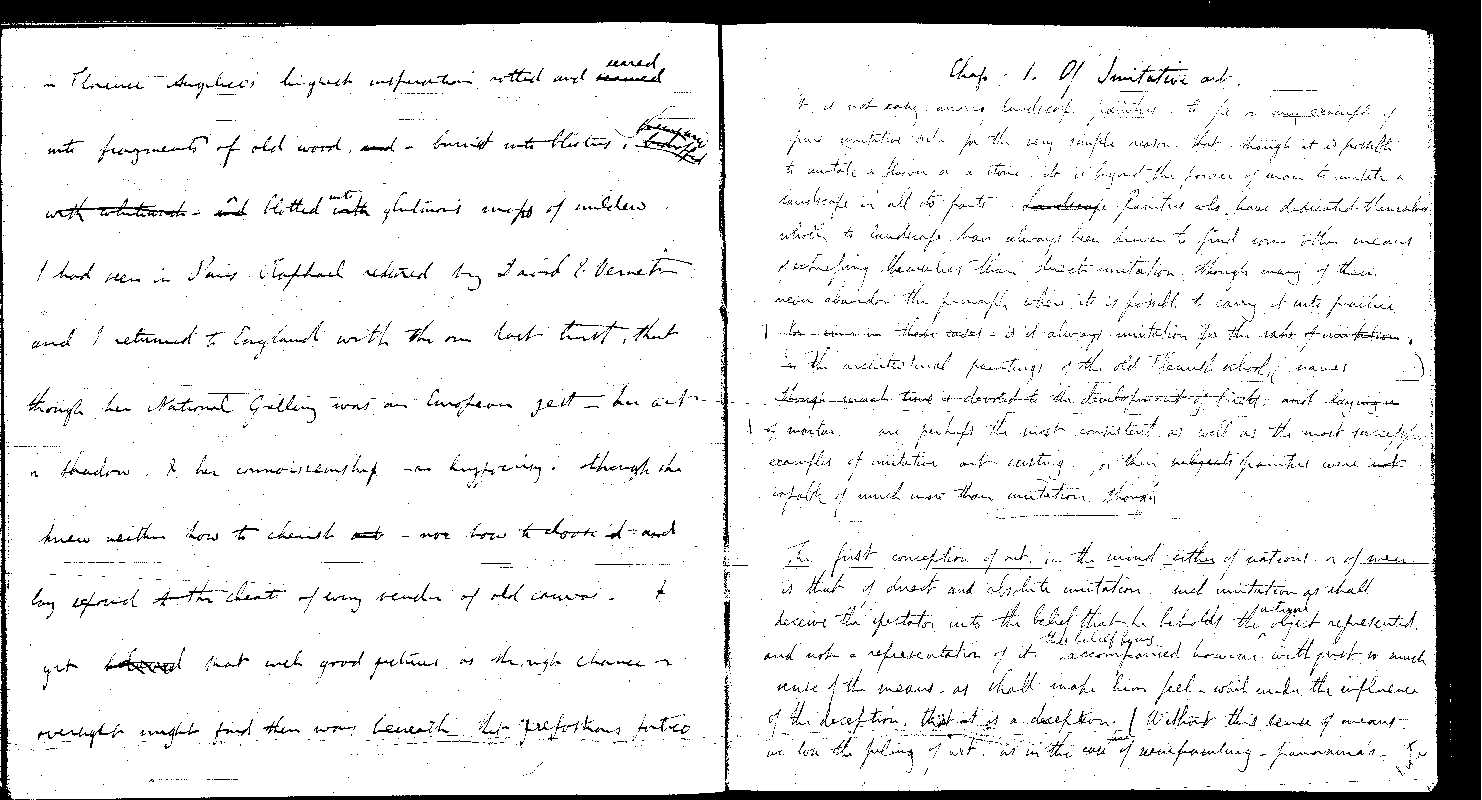 in Florence Angelico's highest inspiration rotted and seared seamed
into fragments of old wood, and - burnt into blisters,
with whitewash - and blotted into with glutinous maps of mildew.
I had seen in Paris Raphael restored by David & Vernet
and I returned to England with the one last trust, that
though her National Gallery was an European jest - her art
a shadow. & her connoisseurship - an hypocrisy: though she
knew neither how to cherish - nor how to choose it - and
lay exposed to the cheats of every vender of old canvas. &
yet that such good pictures as through chance or
oversight might find their way beneath that portico
Chap. 1. Of Imitative art.
It is not easy among landscape painters to fix on any example of
pure imitative for the very simple reason that though it is possible
to imitate a flower or a stone, it is beyond the power of man to imitate a
landscape in all its parts. Landscape Painters who have dedicated themselves
wholly to landscape have always been driven to find some other means
of themselves than direct imitation, though many of them
never abandon the principle when it is possible to carry it into practice
in these cases - is it always imitation for the sake of imitation.
in the architectural paintings of the old Flemish school, ( names )
though much time is devoted to the development of bricks and laying on
of mortar are perhaps the most consistent as well as the most successful
examples of imitative art existing, for their subjects painters were not
capable of much more than imitation though
The first conception of art in the mind either of nations or of men
is that of direct and absolute imitation, such imitation as shall
deceive the spectator into the belief that he beholds the actual object represented.
and not a representation of it this belief being accompanied however with just so much
sense of the means - as shall make him feel - while under the influence
of the deception, that it is a deception. ( Without this sense of means
we lose the feeling of art. as in the case of panoramas -